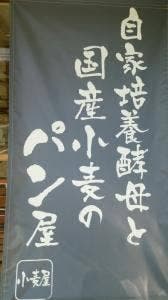 自家培養酵母と
国産小麦の
パン屋
小麦屋